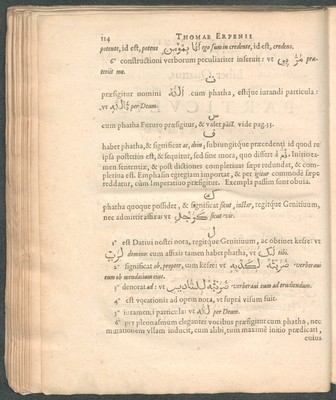 114 THOMAE ERPENII
potente, id est, potens أنا بمؤمن ego sum in credente, id est, credens.
6° constructioni verborum peculiariter inservit: ut مر بي præ-
teriit me.
ت
præfigitur nomini الله cum phatha, estque iurandi particula:
ut تالله per Deum.
س
cum phatha Futuro præfigitur, & valet pag. vide pag. 53.
ف
habet phatha, & significat ac, dein, subiungitque præcedenti id quod re
ipsa posterius est, & sequitur, sed sine mora, quo differt à ثم. Initio ta-
men sententiæ, & post dictiones completivas sæpe redundat, & com-
pletiva est. Emphasin egregiam importat, & per igitur commodè sæpe
redditur, cùm Imperativo præfigitur. Exempla passim sunt obvia.
ك
phatha quoque possidet, & significat sicut, instar, regitque Genitivum,
nec admittit affixa: ut كرجل sicut vir.
ل
1° est Dativi nostri nota, regitque Genitivum, ac obtinet kesre: ut
لرب domino: cum affixis tamen habet phatha, ut لك tibi.
2° significat ob, propter, cum kesre: ut ضربته لكذبه verberavi
eum ob mendacium eius.
3° denotat ad: ut ضربته للتاديب verberavi eum ad erudiendum.
4° est vocationis ad opem nota, ut suprà visum fuit.
5° iuramenti particula: ut لله per Deum.
6° per pleonasmum eleganter vocibus præfigitur cum phatha, nec
mutationem ullam inducit, cum alibi, tum maximè initio prædicati,
cuius